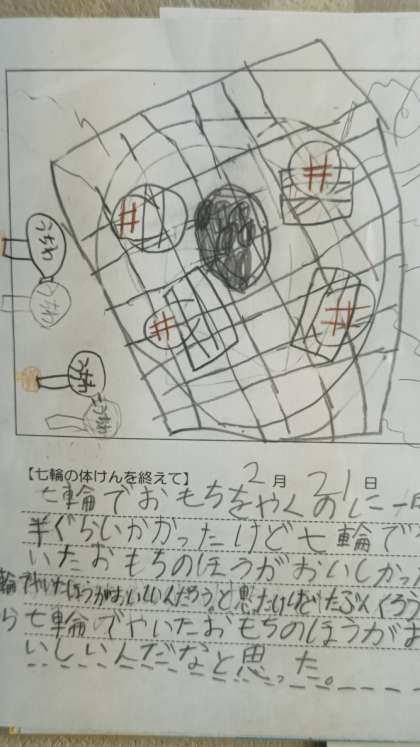 うちわ
うちわ
うちわ
うちわ
【七輪の体けんを終えて】 2月21日
七輪でおもちをやくのに一
半ぐらいかかったけど七輪で
いたおもちのほうがおいしかっ
輪でやいたほうがおいしいんだろう。と思ったけどたぶんくろう
ら七輪でやいたおもちのほうがお
いしいんだなと思った。